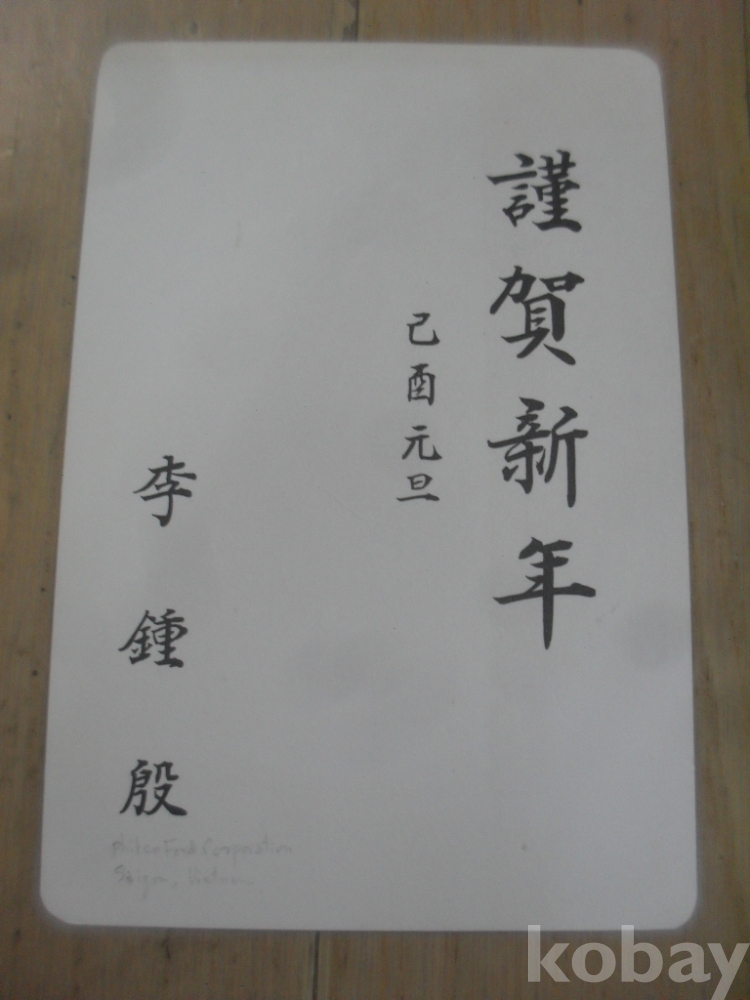 謹賀新年
己酉元旦
李鍾殷
Food Corporation
Saigon, Vietnam
kobay